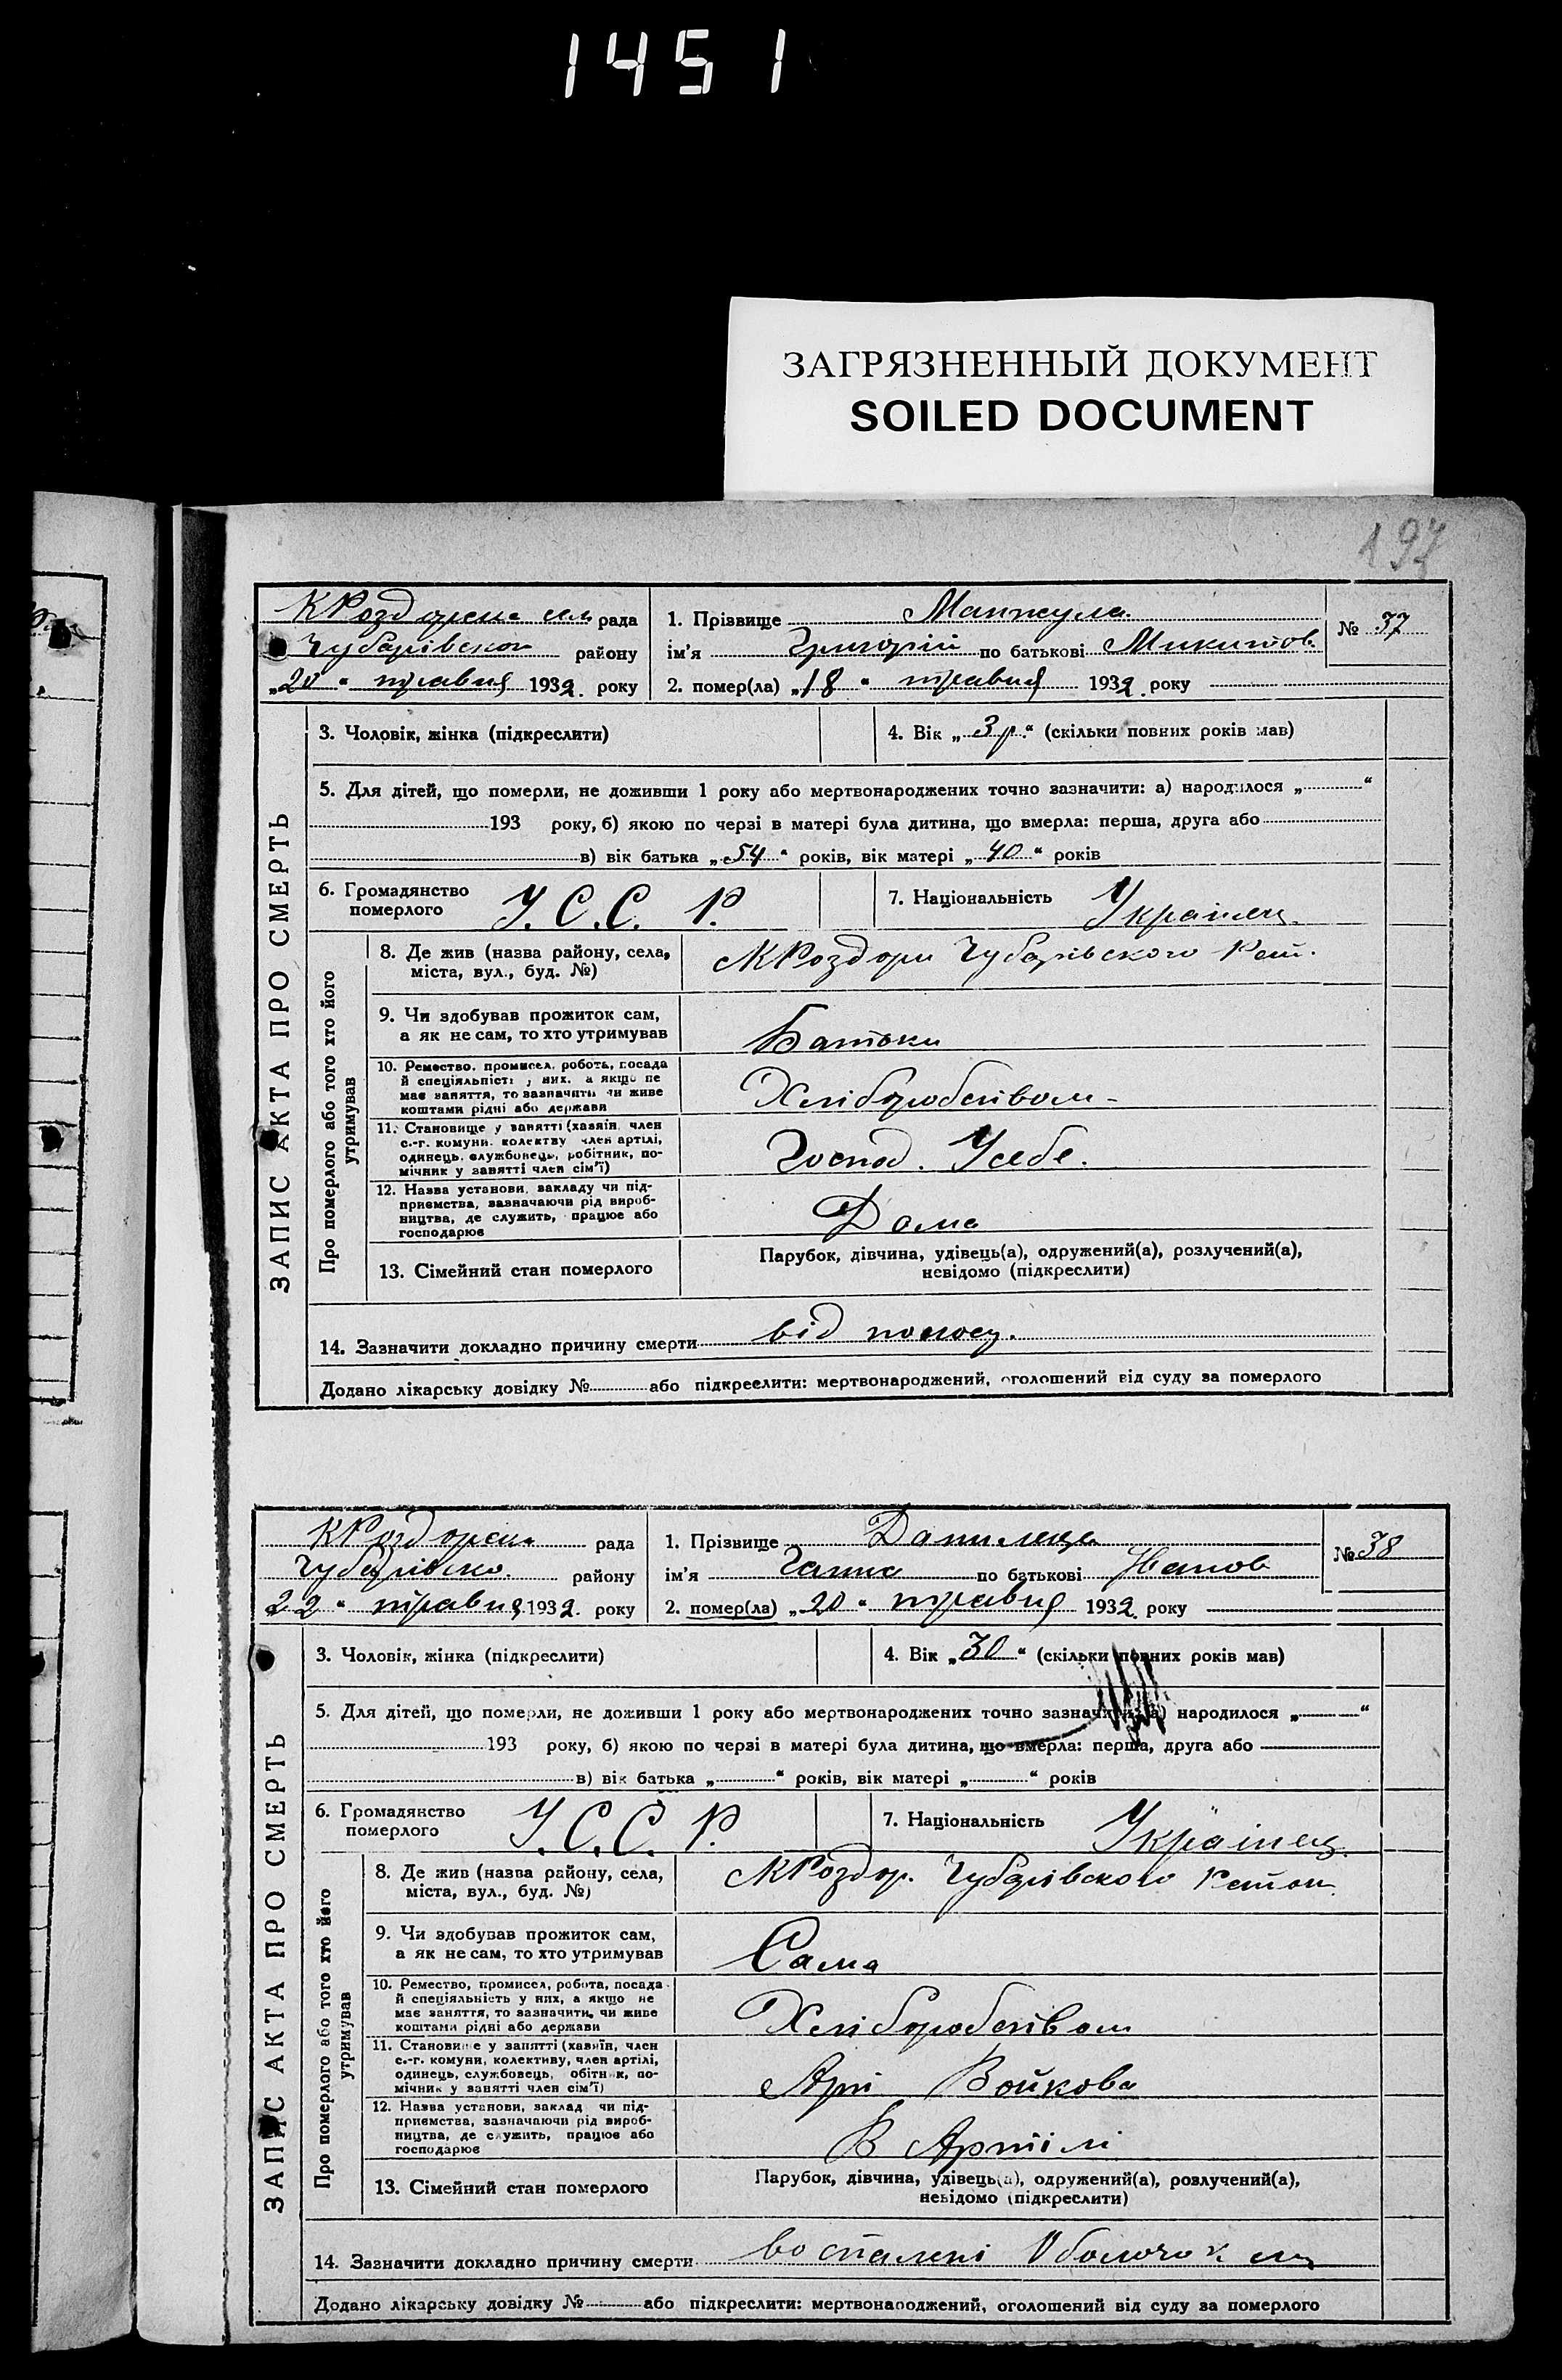 1451
ЗАГРЯЗНЕННЫЙ ДОКУМЕНТ
SOILED DOCUMENT
197
ЗАПИС АКТА ПРО СМЕРТЬ
КРоздорська сель рада
Чубарівськог району
„20“ травня 1932. року
1. Прізвище Манжула
ім'я Григорій по батькові Микитов.
№ 37
2. помер(ла) „18“ травня 1932. року
3. Чоловік, жінка (підкреслити)
4. Вік „3 р.“ (скільки повних років мав)
5. Для дітей, що померли, не доживши 1 року або мертвонароджених точно зазначити: а) народилося „ “
193 року, б) якою по черзі в матері була дитина, що вмерла: перша, друга або
в) вік батька „54“ років, вік матері „40“ років
6. Громадянство
померлого У.С.С.Р.
7. Національність Українец.
Про померлого або того хто його
утримував
8. Де жив (назва району, села,
міста, вул., буд. №)
МКРоздори Чубарівського
9. Чи здобував прожиток сам,
а як не сам, то хто утримував
Батьки
10. Ремество, промисел, робота, посада
й спеціяльність у них, а якщо не
має заняття, то зазначити чи живе
коштами рідні або держави
Хліборобством
11. Становище у занятті (хазяїн, член
с.-г. комуни, колективу член артілі,
одинець, службовець, робітник, по-
мічник у занятті член сім'ї)
Господ. Усебе.
12. Назва установи, закладу чи під-
приємства, зазначаючи рід вироб-
ництва, де служить, працює або
господарює
Дома
13. Сімейний стан померлого
Парубок, дівчина, удівець(а), одружений(а), розлучений(а),
невідомо (підкреслити)
14. Зазначити докладно причину смерти від поносу.
Додано лікарську довідку № або підкреслити: мертвонароджений, оголошений від суду за померлого
ЗАПИС АКТА ПРО СМЕРТЬ
КРоздорська рада
Чубарівсько. району
22“ травня 1932. року
1. Прізвище Данилець
ім'я Ганна по батькові Иванов
№ 38
2. помер(ла) „20“ травня 1932. року
3. Чоловік, жінка (підкреслити)
4. Вік „30“ (скільки повних років мав)
5. Для дітей, що померли, не доживши 1 року або мертвонароджених точно зазначити: а) народилося „ “
193 року, б) якою по черзі в матері була дитина, що вмерла: перша, друга або
в) вік батька „ “ років, вік матері „ “ років
6. Громадянство
померлого У.С.С.Р.
7. Національність Українец.
Про померлого або того хто його
утримував
8. Де жив (назва району, села,
міста, вул., буд. №)
МКРоздор. Чубарівського
9. Чи здобував прожиток сам,
а як не сам, то хто утримував
Сама
10. Ремество, промисел, робота, посада
й спеціяльність у них, а якщо не
має заняття, то зазначити, чи живе
коштами рідні або держави
Хліборобством
11. Становище у занятті (хазяїн, член
с.-г. комуни, колективу, член артілі,
одинець, службовець, обітник, по-
мічник у занятті член сім'ї)
Арт Войкова
12. Назва установи, заклад чи під-
приємства, зазначаючи рід вироб-
ництва, де служить, працює або
господарює
В Артілі
13. Сімейний стан померлого
Парубок, дівчина, удівець(а), одружений(а), розлучений(а),
невідомо (підкреслити)
14. Зазначити докладно причину смерти воспалені Оболочок
Додано лікарську довідку № або підкреслити: мертвонароджений, оголошений від суду за померлого